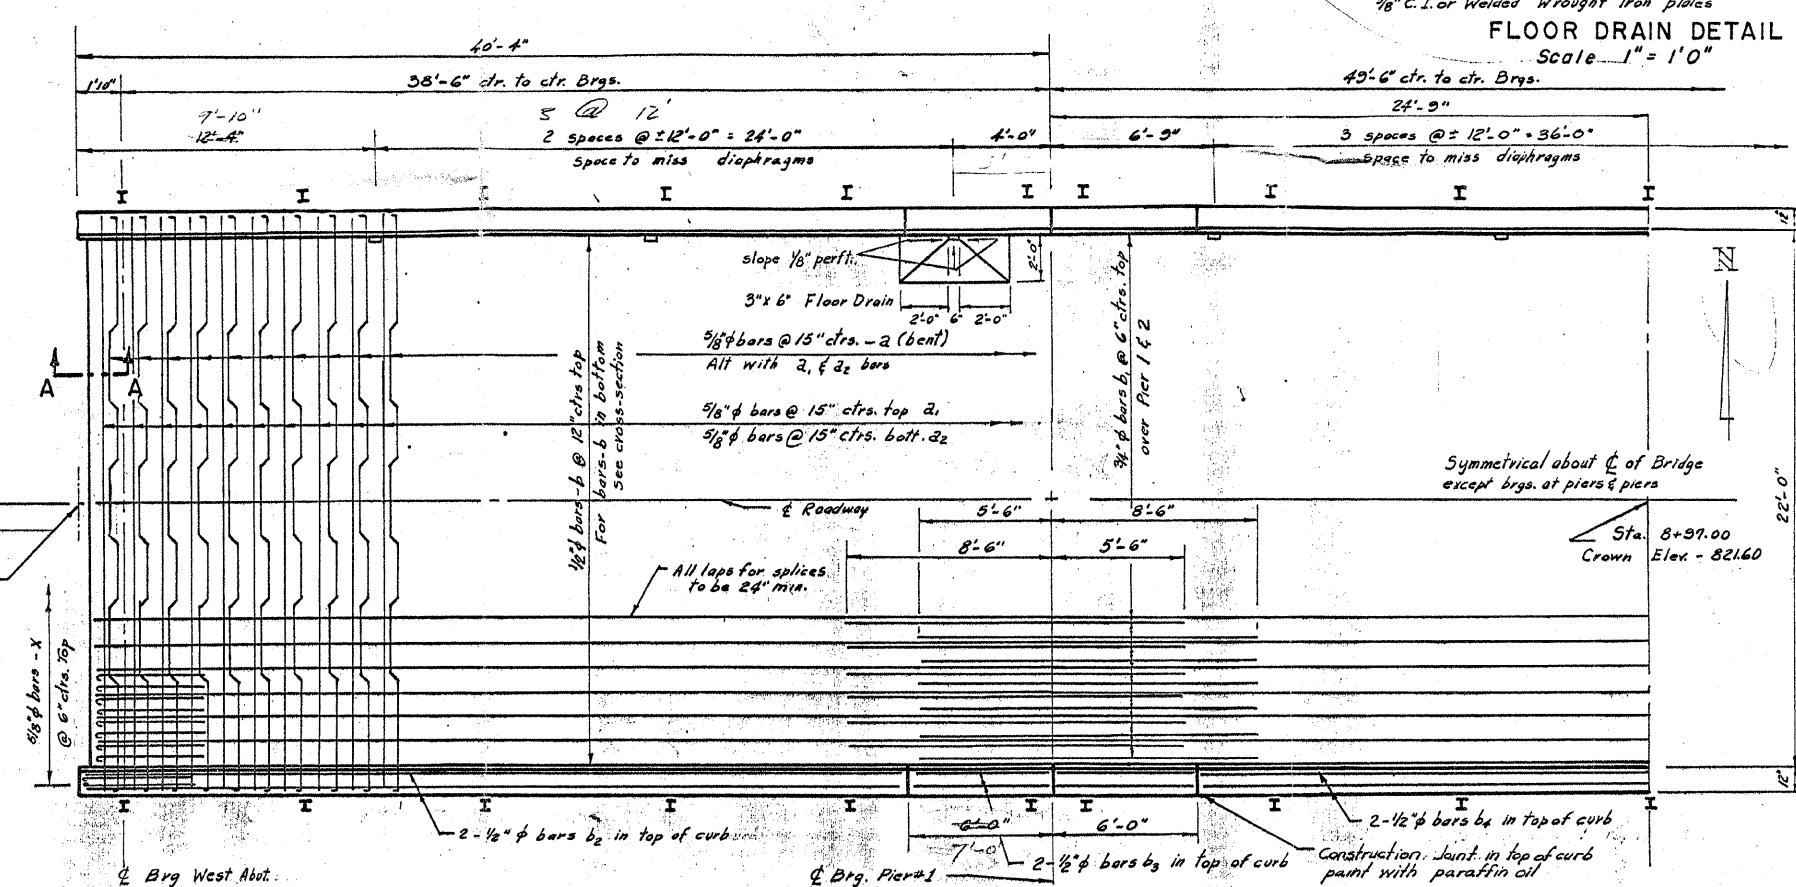 5/8" C.I. or Welded Wrought Iron plates
FLOOR DRAIN DETAIL
Scale 1" = 1'0"
40'-4"
1'10"
38'-6" ctr. to ctr. Brgs.
49'-6" ctr. to ctr. Brgs.
24'-9"
9'-10"
3 @ 12'
12'-4"
2 spaces @ ± 12'-0" = 24'-0"
4'-0"
6'-9"
3 spaces @ ± 12'-0" = 36'-0"
space to miss diaphragms
space to miss diaphragms
I I I I I I I I I I
12"
slope 1/8" per ft.
2'-0"
N
3" x 6" Floor Drain
2'-0" 6" 2'-0"
5/8" ϕ bars @ 15" ctrs. - a (bent)
Alt with a, & a2 bars
A A
5/8" ϕ bars @ 15" ctrs. top a,
5/8" ϕ bars @ 15" ctrs. bott. a2
1/2" ϕ bars - b @ 12" ctrs top
For bars - b in bottom
See cross-section
3/4" ϕ bars b, @ 6" ctrs. top
over Pier 1 & 2
Symmetrical about ℄ of Bridge
except brgs. at piers & piers
22'-0"
℄ Roadway
5'-6"
8'-6"
Sta. 8+97.00
Crown Elev. - 821.60
8'-6"
5'-6"
All laps for splices
to be 24" min.
5/8" ϕ bars - X
@ 6" ctrs. Top
12"
I I I I I I I I I I
2 - 1/2" ϕ bars b2 in top of curb
6'-0"
6'-0"
7'-0"
2 - 1/2" ϕ bars b4 in top of curb
2 - 1/2" ϕ bars b3 in top of curb
Construction Joint in top of curb
paint with paraffin oil
℄ Brg West Abut.
℄ Brg. Pier #1